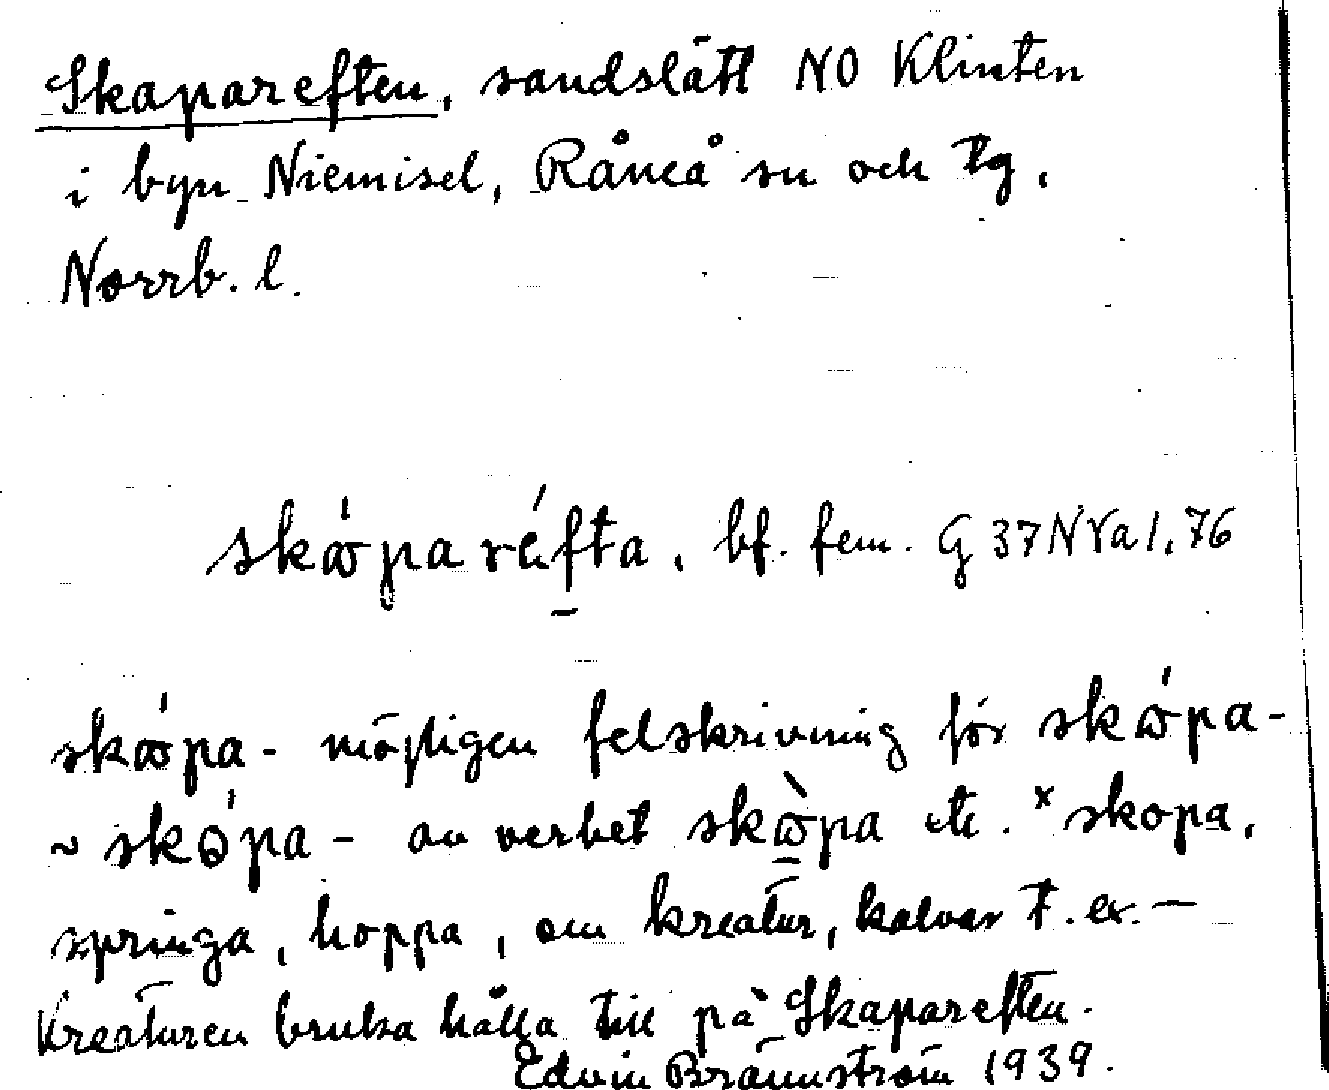 Skapareften, sandslätt NO Klinten
i byn Niemisel, Råneå sn och tg,
Norrb. l.
skɷ́paréfta, bf. fem. G 37 NVal, 76
skɷ́pa- möjligen felskrivning för skɷ́pa-
~ skɷ́pa- av verbet skɷ̀pa etc. ˣskopa,
springa, hoppa, om kreatur, kalvar t. ex. —
Kreaturen bruka hålla till på Skapareften.
Edvin Brännström 1939.